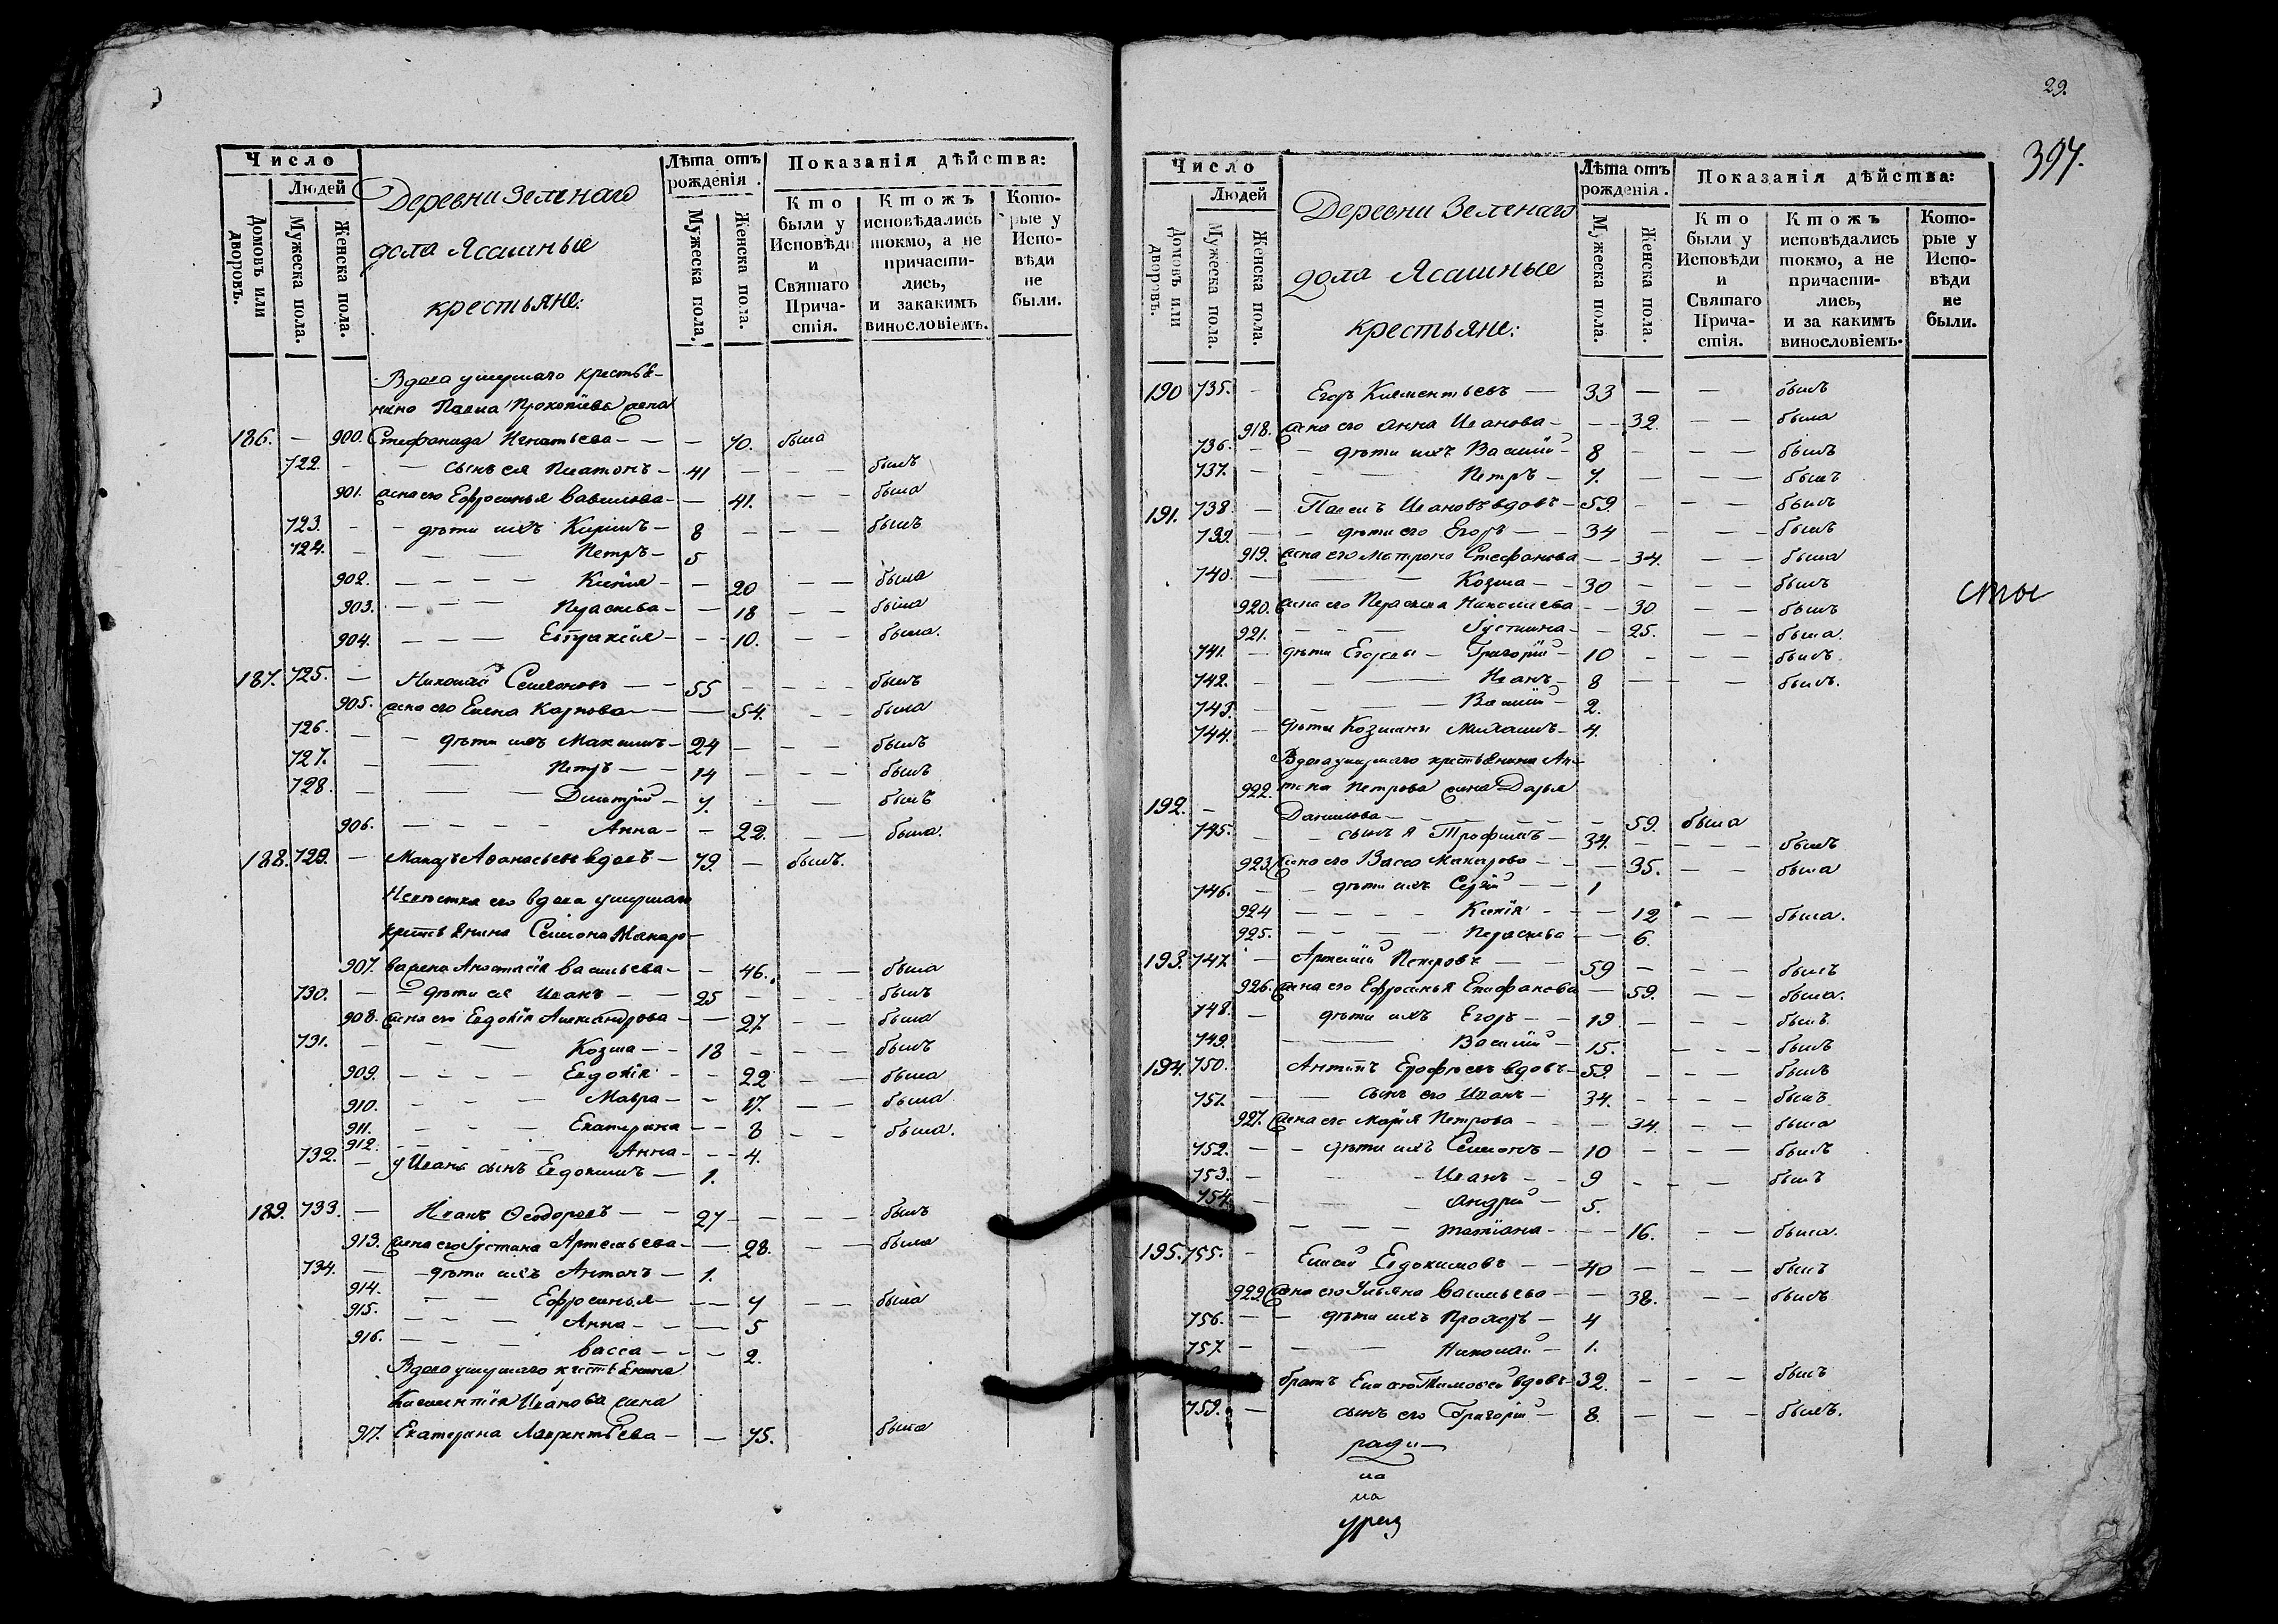 Число
Людей
Домовъ или дворовъ.
Мужеска пола.
Женска пола.
Деревни Зеленаго
дола Ясашные
крестьяне:
Лѣта отъ рожденія.
Мужеска пола.
Женска пола.
Показанія дѣйства:
Кто были у Исповѣди и Святаго Причастія.
Ктожъ исповѣдались токмо, а не причастились, и закакимъ винословіемъ.
Которые у Исповѣди не были.
Вдова умершаго крестья-
нина Павла Прокопіева жена
186. — 900. Стефанида Игнатьева — — — 70. была
722. — — сынъ ея Платонъ — 41 — — — былъ
901. жена его Ефросинья Вавилова — — 41. — — была
723. — — дѣти ихъ Кирилъ — 8 — — — былъ
724. — — — Петръ — 5
902. — — — — Килія — — 20 — — была
903. — — — Праскева — — 18 — — была
904. — — — Евпраксія — — — 10. — — была.
187. 725. — Николай Семеновъ — — 55 — — — — былъ
905. жена его Елена Карпова — — — 54. — — была
726. — — дѣти ихъ Максимъ — 24 — — — былъ
727. — — Петръ — — 14 — — — былъ
728. — — — Дмитрій — 7. — — былъ
906. — — — — Анна — — 22. — — была.
188. 729. — Макаръ Афанасьевъ вдовъ — 79. — былъ.
Невѣстка его вдова умершаго
крестьянина Семена Макаро-
907. ва жена Анастасія Васильева — — 46. — — была
730. — — дѣти ея Иванъ — — 25 — — — — былъ
908. жена его Евдокія Александрова — — 27. — — была
731. — — — Козма — — 18 — — — — былъ
909. — — — — Евдокія — — 22 — — была
910. — — — Мавра — — 17. — — была.
911. — — — Екатерина — — 8 — — была.
912. — — — — Анна — — — 4.
732. — у Ивана сынъ Евдокимъ — 1.
189. 733. — Иванъ Ѳеодоровъ — — 27 — — — — былъ
913. жена его Устина Артемьева — — 28. — — была
734. — — дѣти ихъ Антонъ — 1.
914. — — Ефросинья — — — 7 — — была
915. — — — Анна — — — 5
916. — — — васса — — — 2.
Вдова умершаго крестьянина
Климентія Иванова жена
917. Екатерина Лаврентьева — — 75. была
29.
397.
Число
Людей
Домовъ или дворовъ.
Мужеска пола.
Женска пола.
Деревни Зеленаго
дола Ясашные
крестьяне:
Лѣта отъ рожденія.
Мужеска пола.
Женска пола.
Показанія дѣйства:
Кто были у Исповѣди и Святаго Причастія.
Ктожъ исповѣдались токмо, а не причастились, и за какимъ винословіемъ.
Которые у Исповѣди не были.
190 735. — Егоръ Климентьевъ — 33 — — былъ
918. жена его Анна Иванова — — — 32. — — была
736. — — дѣти ихъ Василій — 8 — — — былъ
737. — — — Петръ — 7. — — — былъ
191. 738. — Павелъ Ивановъ вдовъ — 59. — — — былъ
739. — — дѣти его Егоръ — — 34 — — — былъ
919. жена его Матрона Стефанова — — 34. — — была
740. — — — Козма — — 30 — — — былъ
920. жена его Праскева Николаева — — 30 — — былъ
921. — — — Густинна — — 25. — — была.
сты
741. — дѣти Егоровы — Григорій — 10 — — — былъ.
742. — — — Иванъ — 8 — — — былъ.
743. — — — — Василій — 2.
744. — дѣти Козмины Михаилъ — 4.
Вдова умершаго крестьянина Ан-
192. — 922. Петрова жена Дарья
Данилова — — — — 59. была
745. — — сынъ я Трофимъ — 34. — — — — былъ
923. жена его Васса Макарова — — — 35. — — была
746. — — дѣти ихъ Сергій — — 1
924 — — — — Килія — — — 12 — — была.
925. — — — — Праскева — — 6.
193. 747. — Артемій Петровъ — — 59 — — — былъ
926. жена его Ефросинья Епифанова — 59. — — была.
748. — дѣти ихъ Егоръ — — 19 — — — былъ.
749. — — Василій — 15. — — — былъ
194. 750. Антипъ Ерофеевъ вдовъ — 59. — — — былъ
751. — — сынъ его Иванъ — 34. — — — — былъ
927. жена его Марія Петрова — — — 34. — — была
752. — — дѣти ихъ Семенъ — 10 — — — былъ
753. — — Иванъ — — 9 — — — былъ
754. — — — Андрей — 5.
— — — татіана — — — 16. — — была.
195. 755. — Елисей Евдокимовъ — — 40 — — — былъ
929. жена его Ульяна Васильева — — 38. — — былъ
756. — — дѣти ихъ Прохоръ — 4
757. — — — Николай — 1.
братъ Тимофей вдовъ — 32. — — — былъ
759. — сынъ его Григорій — 8. — — — былъ.